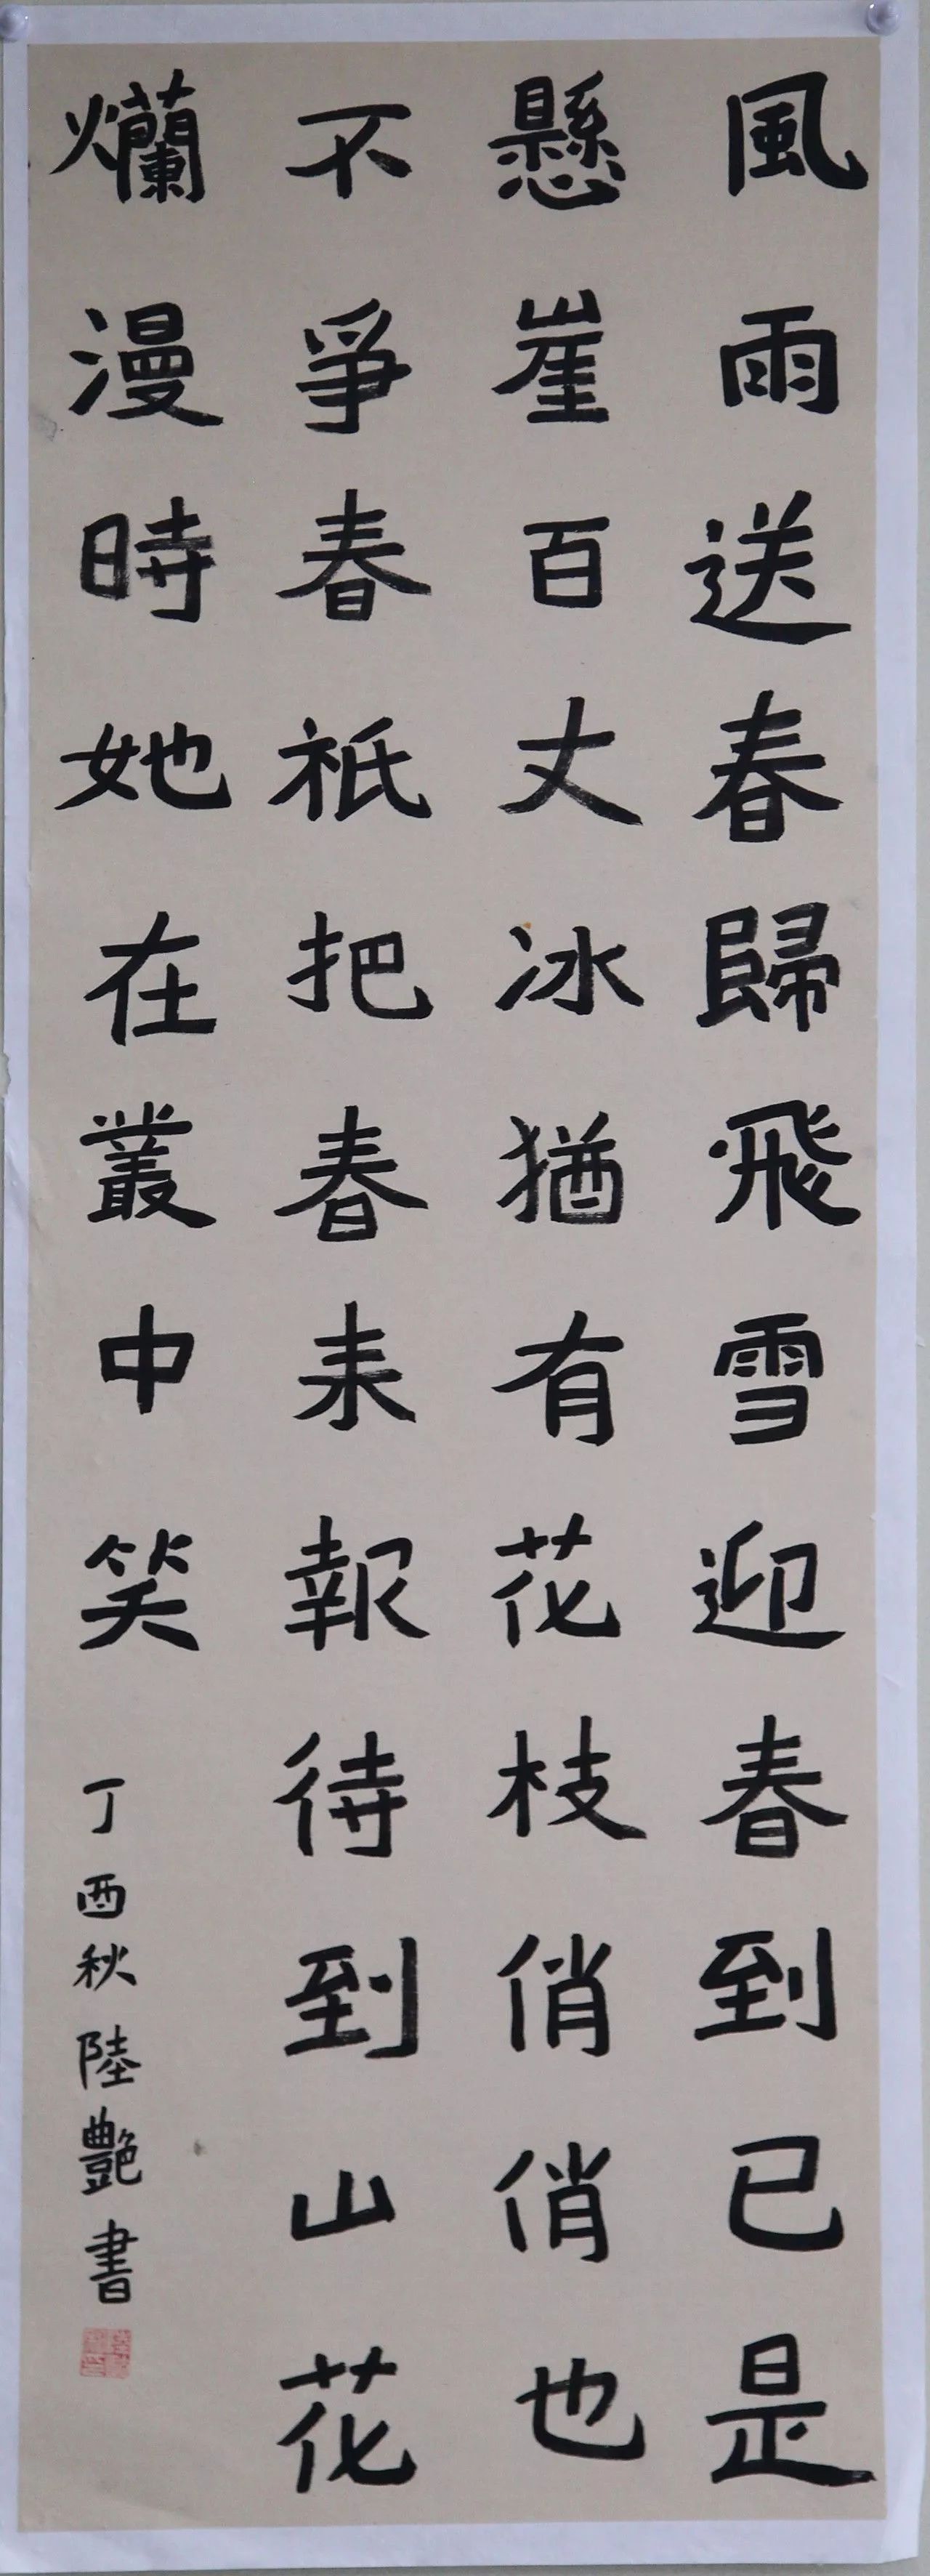 風雨送春歸飛雪迎春到已是
懸崖百丈冰猶有花枝俏俏也
不爭春祇把春来報待到山花
爛漫時她在叢中笑
丁酉秋陸艷書